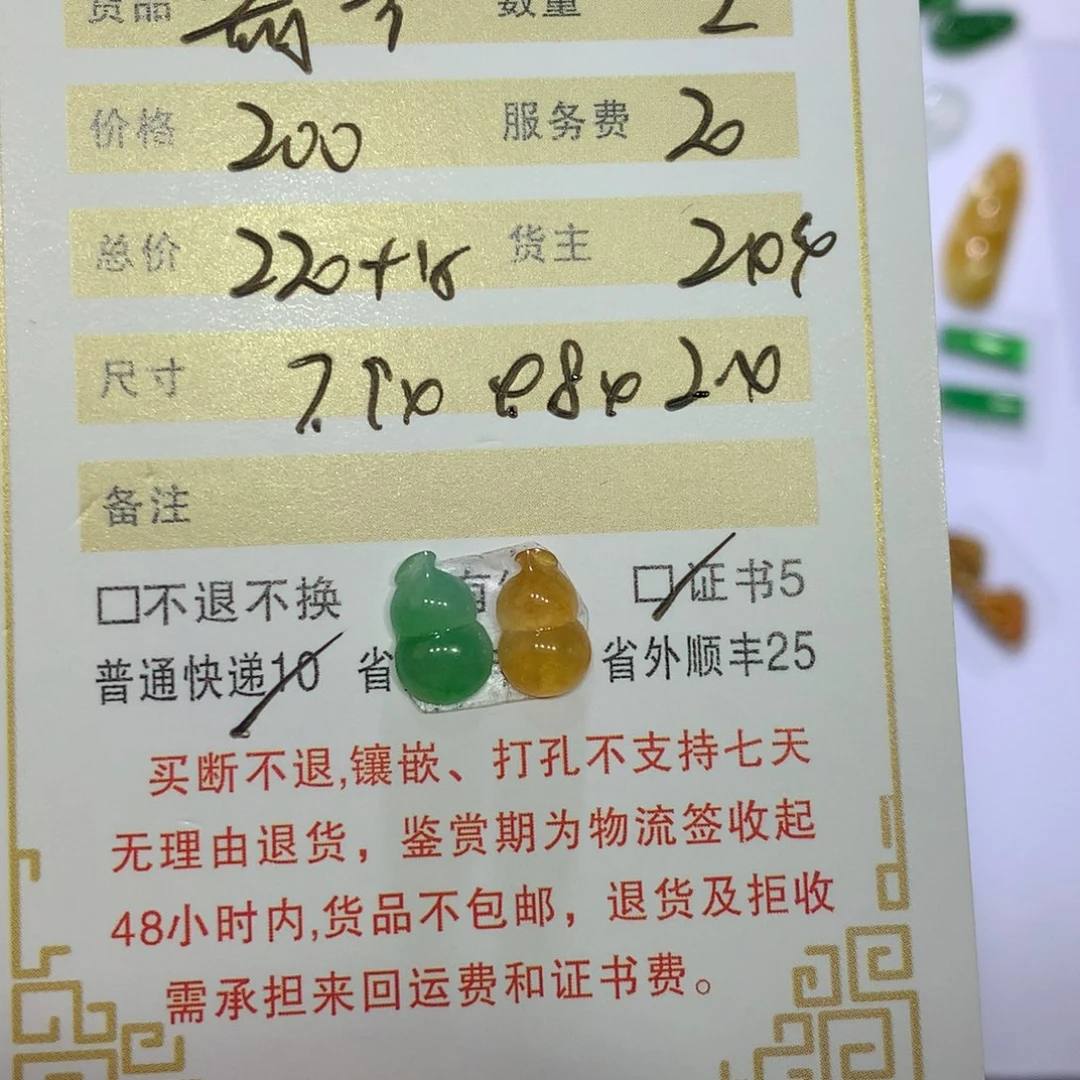 货品 葫芦 数量 2
价格 200 服务费 20
总价 220+15 货主
尺寸
备注
□不退不换 □证书5
普通快递10 省 省外顺丰25
买断不退,镶嵌、打孔不支持七天
无理由退货，鉴赏期为物流签收起
48小时内,货品不包邮，退货及拒收
需承担来回运费和证书费。